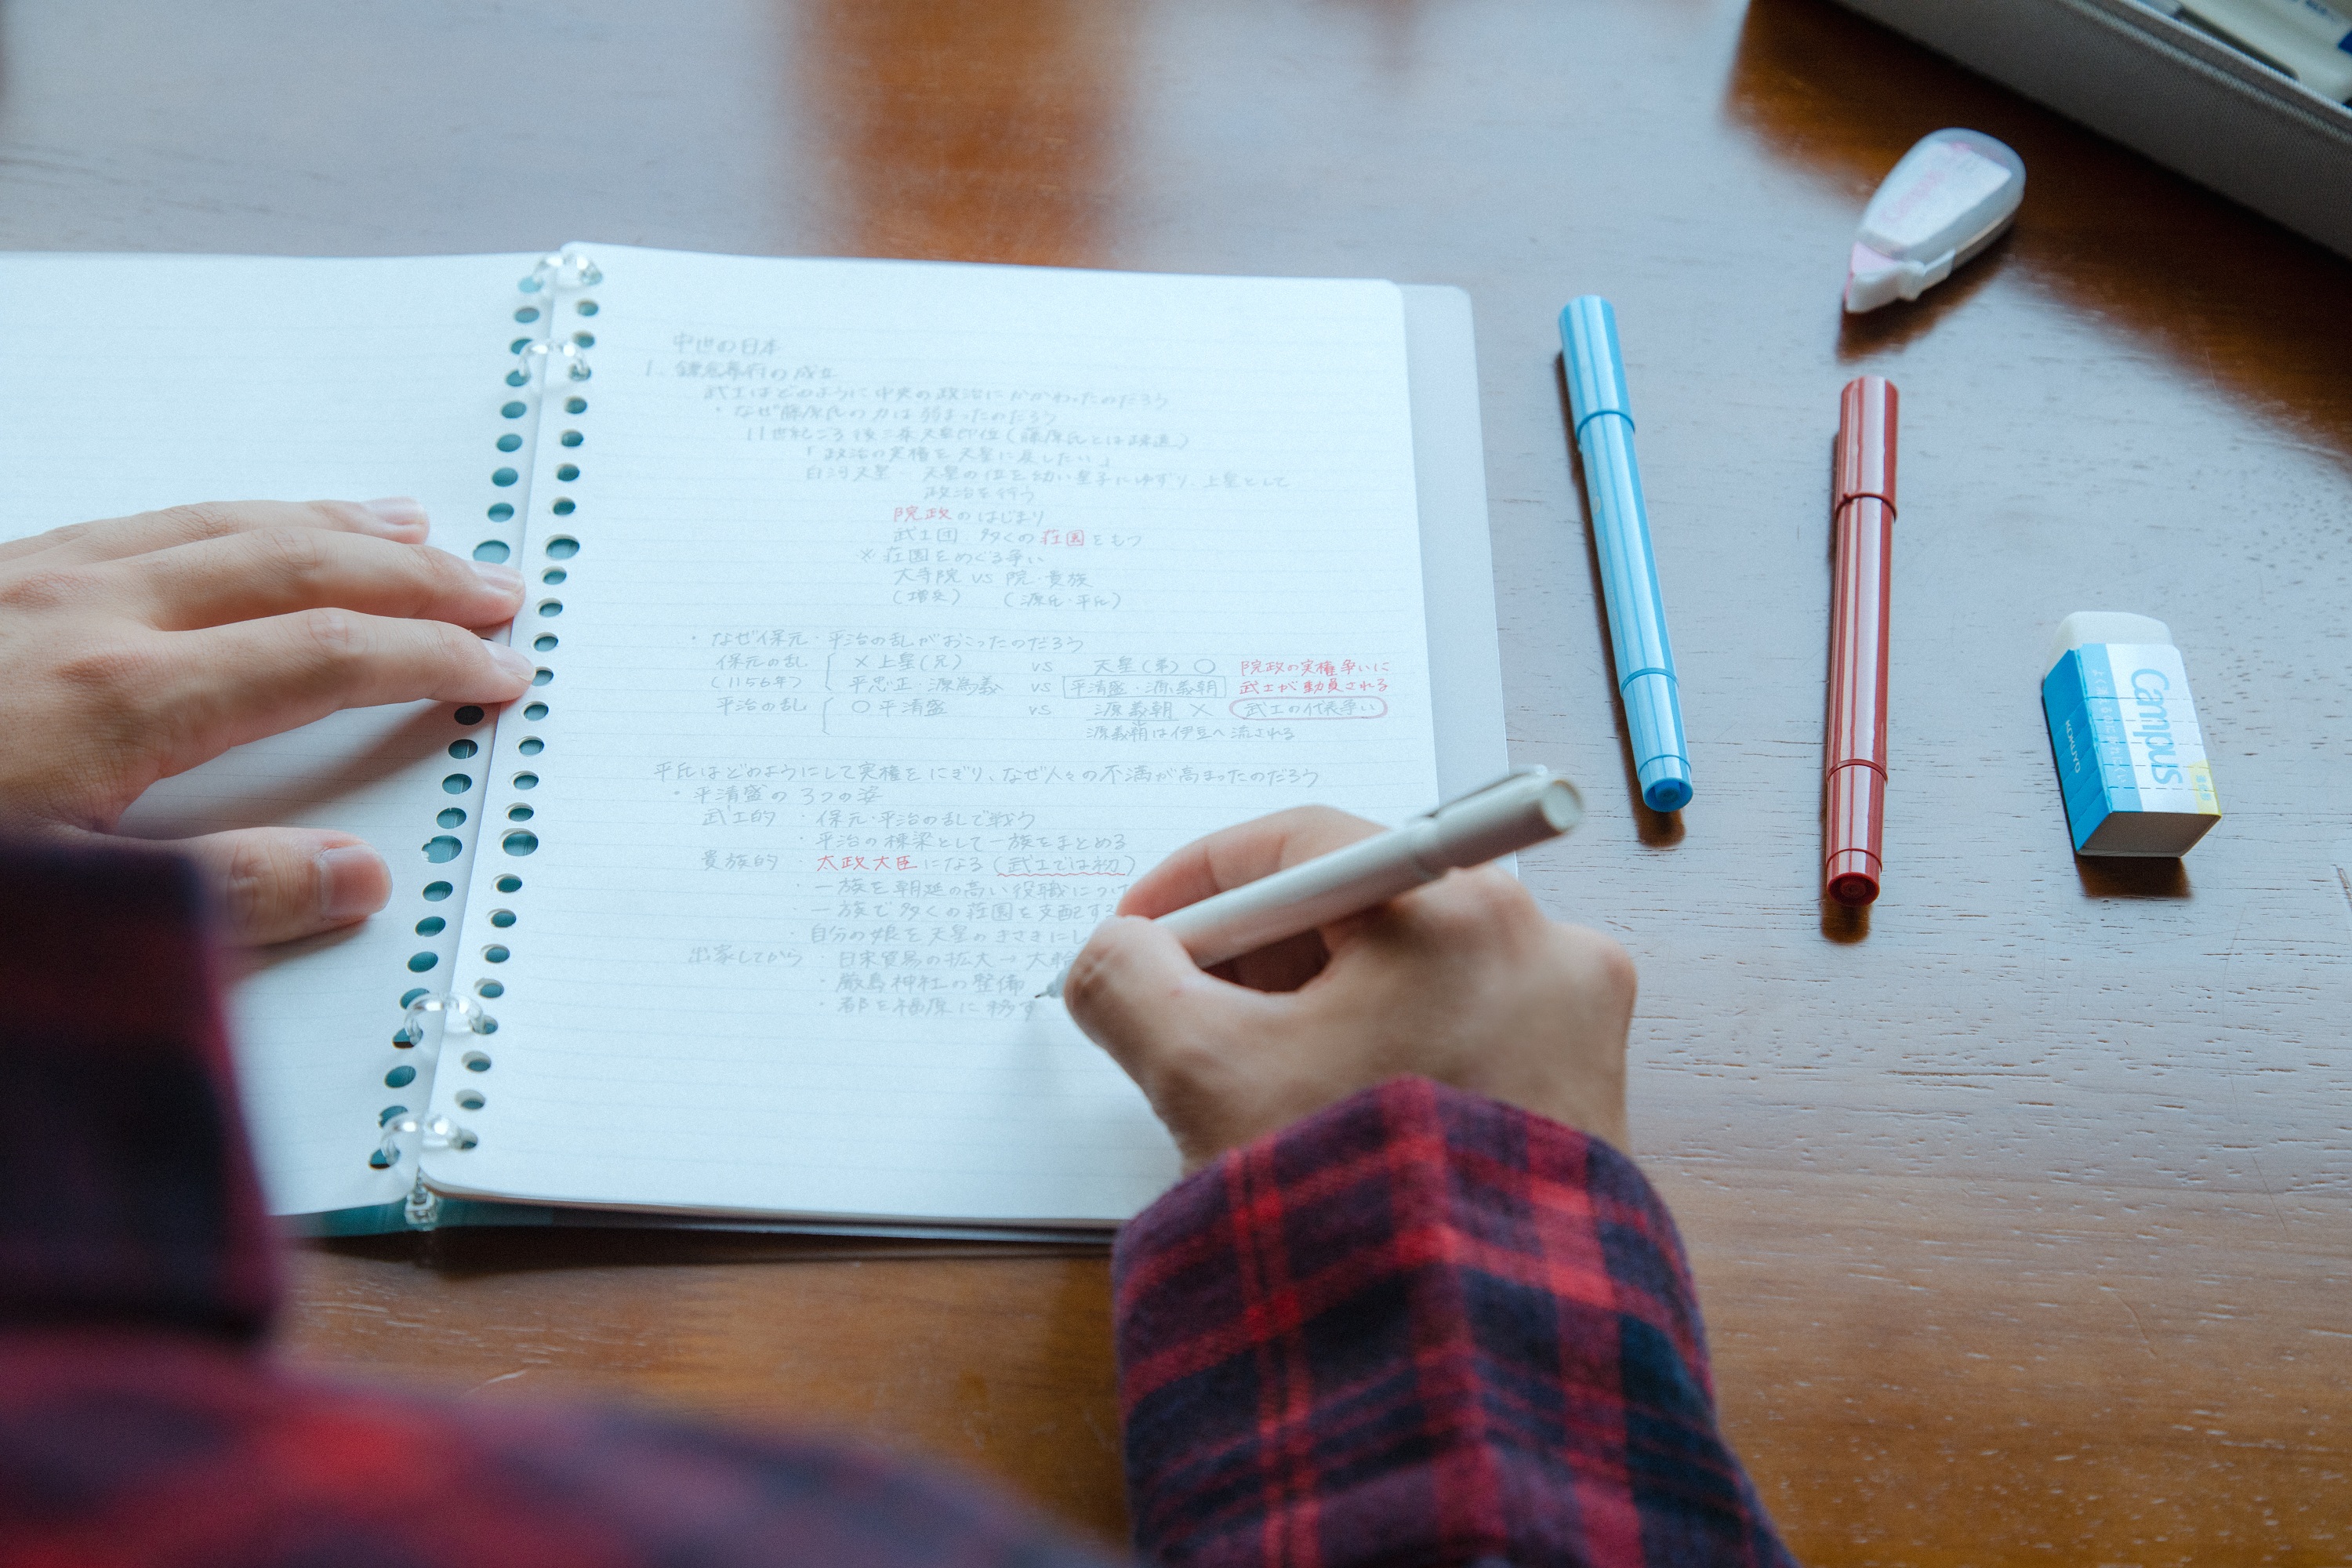 中世の日本
1. 鎌倉幕府の成立
武士はどのように中央の政治にかかわったのだろう
・なぜ藤原氏の力は弱まったのだろう
11世紀ごろ 後三条天皇即位(藤原氏とは疎遠)
「政治の実権を天皇に戻したい」
白河天皇 天皇の位を幼い皇子にゆずり、上皇として
政治を行う
院政のはじまり
武士団 多くの荘園をもつ
※荘園をめぐる争い
大寺院 VS 院・貴族
(僧兵) (源氏・平氏)
・なぜ保元・平治の乱がおこったのだろう
保元の乱 ×上皇(兄) vs 天皇(弟)○ 院政の実権争いに
(1156年) 平忠正・源為義 vs 平清盛・源義朝 武士が動員される
平治の乱 ○平清盛 vs 源義朝× 武士の代表争い
源義朝は伊豆へ流される
平氏はどのようにして実権をにぎり、なぜ人々の不満が高まったのだろう
・平清盛の3つの姿
武士的 ・保元・平治の乱で戦う
・平治の棟梁として一族をまとめる
貴族的 ・太政大臣になる(武士では初)
・一族を朝廷の高い役職につけ
・一族で多くの荘園を支配する
・自分の娘を天皇のきさきにし
出家してから ・日宋貿易の拡大→大輪
・厳島神社の整備
・都を福原に移す
Campus
KOKUYO